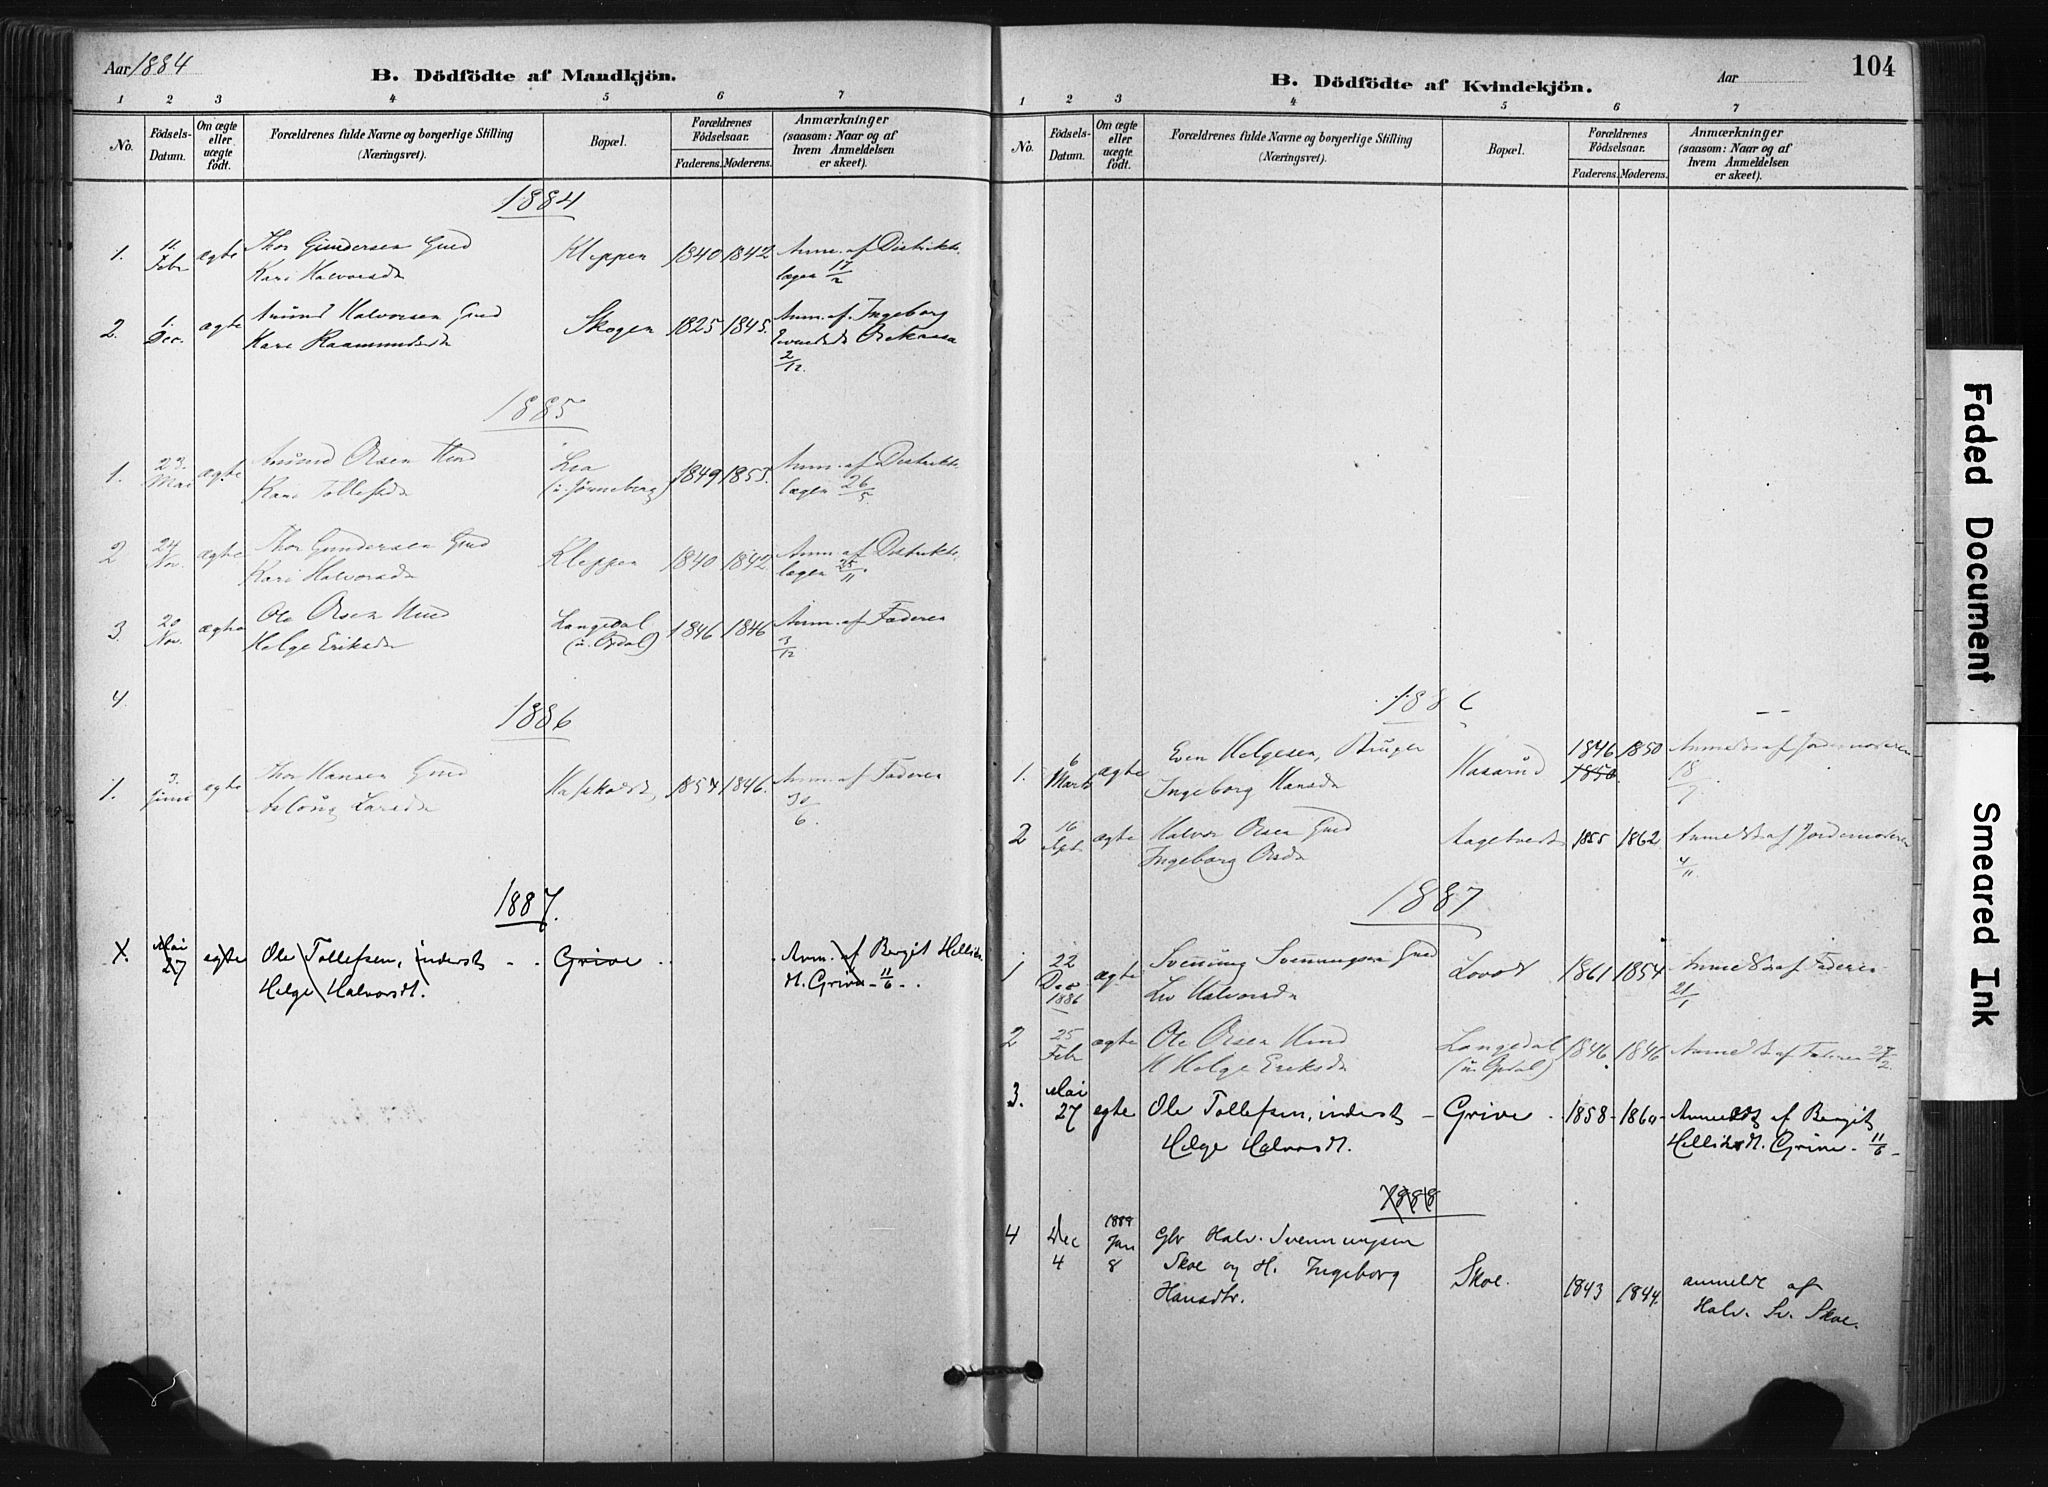 Aar 1884
B. Dödfödte af Mandkjön.
1 2 3 4 5 6 7
No. Födsels-Datum. Om ægte eller uægte födt. Forældrenes fulde Navne og borgerlige Stilling (Næringsvei). Bopæl. Forældrenes Födselsaar. Faderens. Moderens. Anmærkninger (saasom: Naar og af hvem Anmeldelsen er skeet).
1884
1. 11 Febr ægte Thor Gundersen Gmd Kleppen 1840 1842 Anm. af Distrikts-
Kari Halvorsdr lægen 17/2
2. 1. Dec. ægte Amund Halvorsen Gmd Skogen 1825 1845. Anm. af Ingeborg
Kari Raamundsdr
2/12.
1885
1. 23. Mai ægte Amund Olsen Hmd Lea 1849 1853. Anm. af Distrikts-
Kari Tollefsdr (u. Jønneberg) lægen 26/5
2 24 Nov. ægte Thor Gundersen Gmd Kleppen 1840 1842. Anm. af Distrikts-
Kari Halvorsdr lægen 25/11.
3. 20 Nov. ægte Ole Olsen Hmd Langedal 1846 1846 Anm. af Faderen
Helge Eriksdr (u. Opdal) 3/12
4
1886
1. 3. Juni egte Thor Hansen Gmd 1854 1846. Anm. af Faderen
Aslaug Larsdr 30/6.
1887.
1. Mai 27 egte Ole Tollefsen, inderst - . Grive . . Anm. af Bergit Helliks-
Helge Halvorsdt. dt. Grive - 11/6 - .
104
B. Dödfödte af Kvindekjön.
Aar
1 2 3 4 5 6 7
No. Födsels-Datum. Om ægte eller uægte födt. Forældrenes fulde Navne og borgerlige Stilling (Næringsvei). Bopæl. Forældrenes Födselsaar. Faderens. Moderens. Anmærkninger (saasom: Naar og af hvem Anmeldelsen er skeet).
1886
1. 6 Marts ægte Even Helgesen, Bruger Hasarud 1846 1850 Anmeldt af Jordemoderen
Ingeborg Hansdr 1850. 18/7
2 16 Spt ægte Halvor Olsen Gmd Aagetveit 1855 1862 Anmeldt af Jordemoderen
Ingeborg Olsdr 4/11.
1887
1 22 Dec 1886 ægte Svennung Svennungsen Gmd Lovold 1861 1854 Anmeldt af Faderen
Liv Halvorsdr 21/1
2 25 Febr ægte Ole Olsen Hmd Langedal 1846 1846 Anmeldt af Faderen 27/2.
H Helge Eriksdr (u. Opdal)
3. Mai 27 egte Ole Tollefsen, inderst - Grive . 1858 - 1860 - Anmeldt af Bergit
Helge Halvorsdt. Helliksdt. Grive - 11/6 -
1888
4 Dec 4 1889 Jan 8 Gbr Halv. Svennungsen
Skoe og H. Ingeborg Skoe. 1843 1844. anmeldt af
Hansdtr. Halv. Sv. Skoe.
Faded Document
Smeared Ink